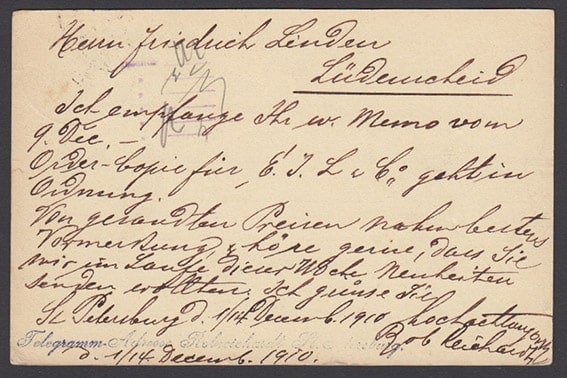 Herrn Friedrich Linden
Lüdenscheid
Ich empfange Ihr w. Memo vom
9. Dec. –
Order-Copie für „E. T. L & Co" geht in
Ordnung.
Von gesandten Preisen nahm bestens
Vormerkung & höre gerne, dass Sie
mir im Laufe dieser Woche Neuheiten
senden wollten. Ich grüsse Sie
St Petersburg d. 1/14 Decemb. 1910 hochachtungsvoll
Telegramm-Adresse: Robreichardt Rob Reichardt
d. 1/14 Decemb. 1910.